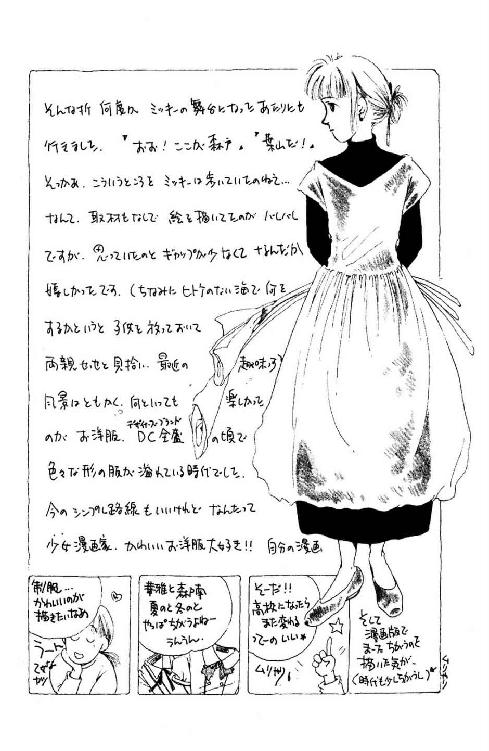 そんな折 何度か ミッキーの舞台となってあたりにも
行きました。『おお！ここが森戸』『葉山だ！』
そっかぁ、こういうところを ミッキーは歩いていたのねえ…
なんて、取材もなしで 絵を描いてたのが バレバレ
ですが、思っていたのとギャップが少なくて なんだか
嬉しかったです。(ちなみに ヒトケのない海で 何を
するかというと 子供を放っておいて
両親セッセと貝拾い、最近の 趣味♪)
風景はともかく、何といっても 楽しかった
のが お洋服。DC全盛の頃で
デザイナーズブランド
色々な形の服が溢れている時代でした。
今のシンプル路線もいいけれど なんたって
少女漫画家、かわいいお洋服大好き!! 自分の漫画
制服…
かわいいのが
描きたいなぁ
ラート
華雅と森戸南
夏のと冬のと
やっぱちがうよねー
うんうん。
そーだ!!
高校になったら
また変わる
ってーの いい
ムリヤリ
そして
漫画版で
まったちがうので
描いた気が。
(時代も少しちがうし)